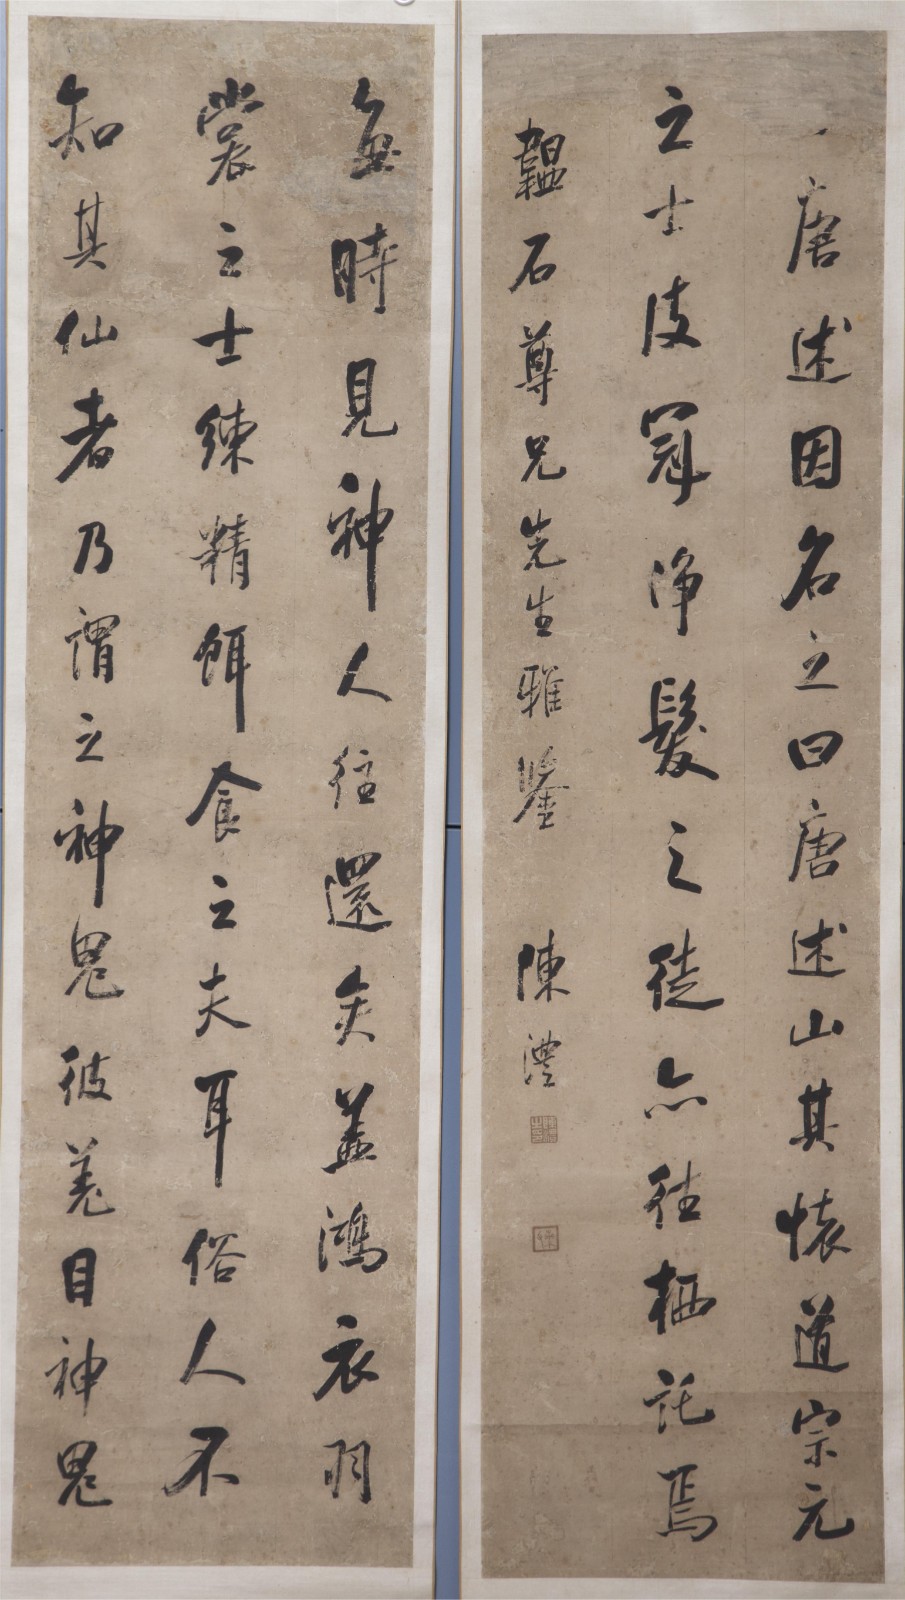 每時見神人往還矣蓋鴻衣羽
裳之士練精餌食之夫耳俗人不
知其仙者乃謂之神鬼彼羌目神鬼
唐述因名之曰唐述山其懷道宗元
之士皮冠淨髮之徒亦往栖託焉
韞石尊兄先生雅鑒 陳澧